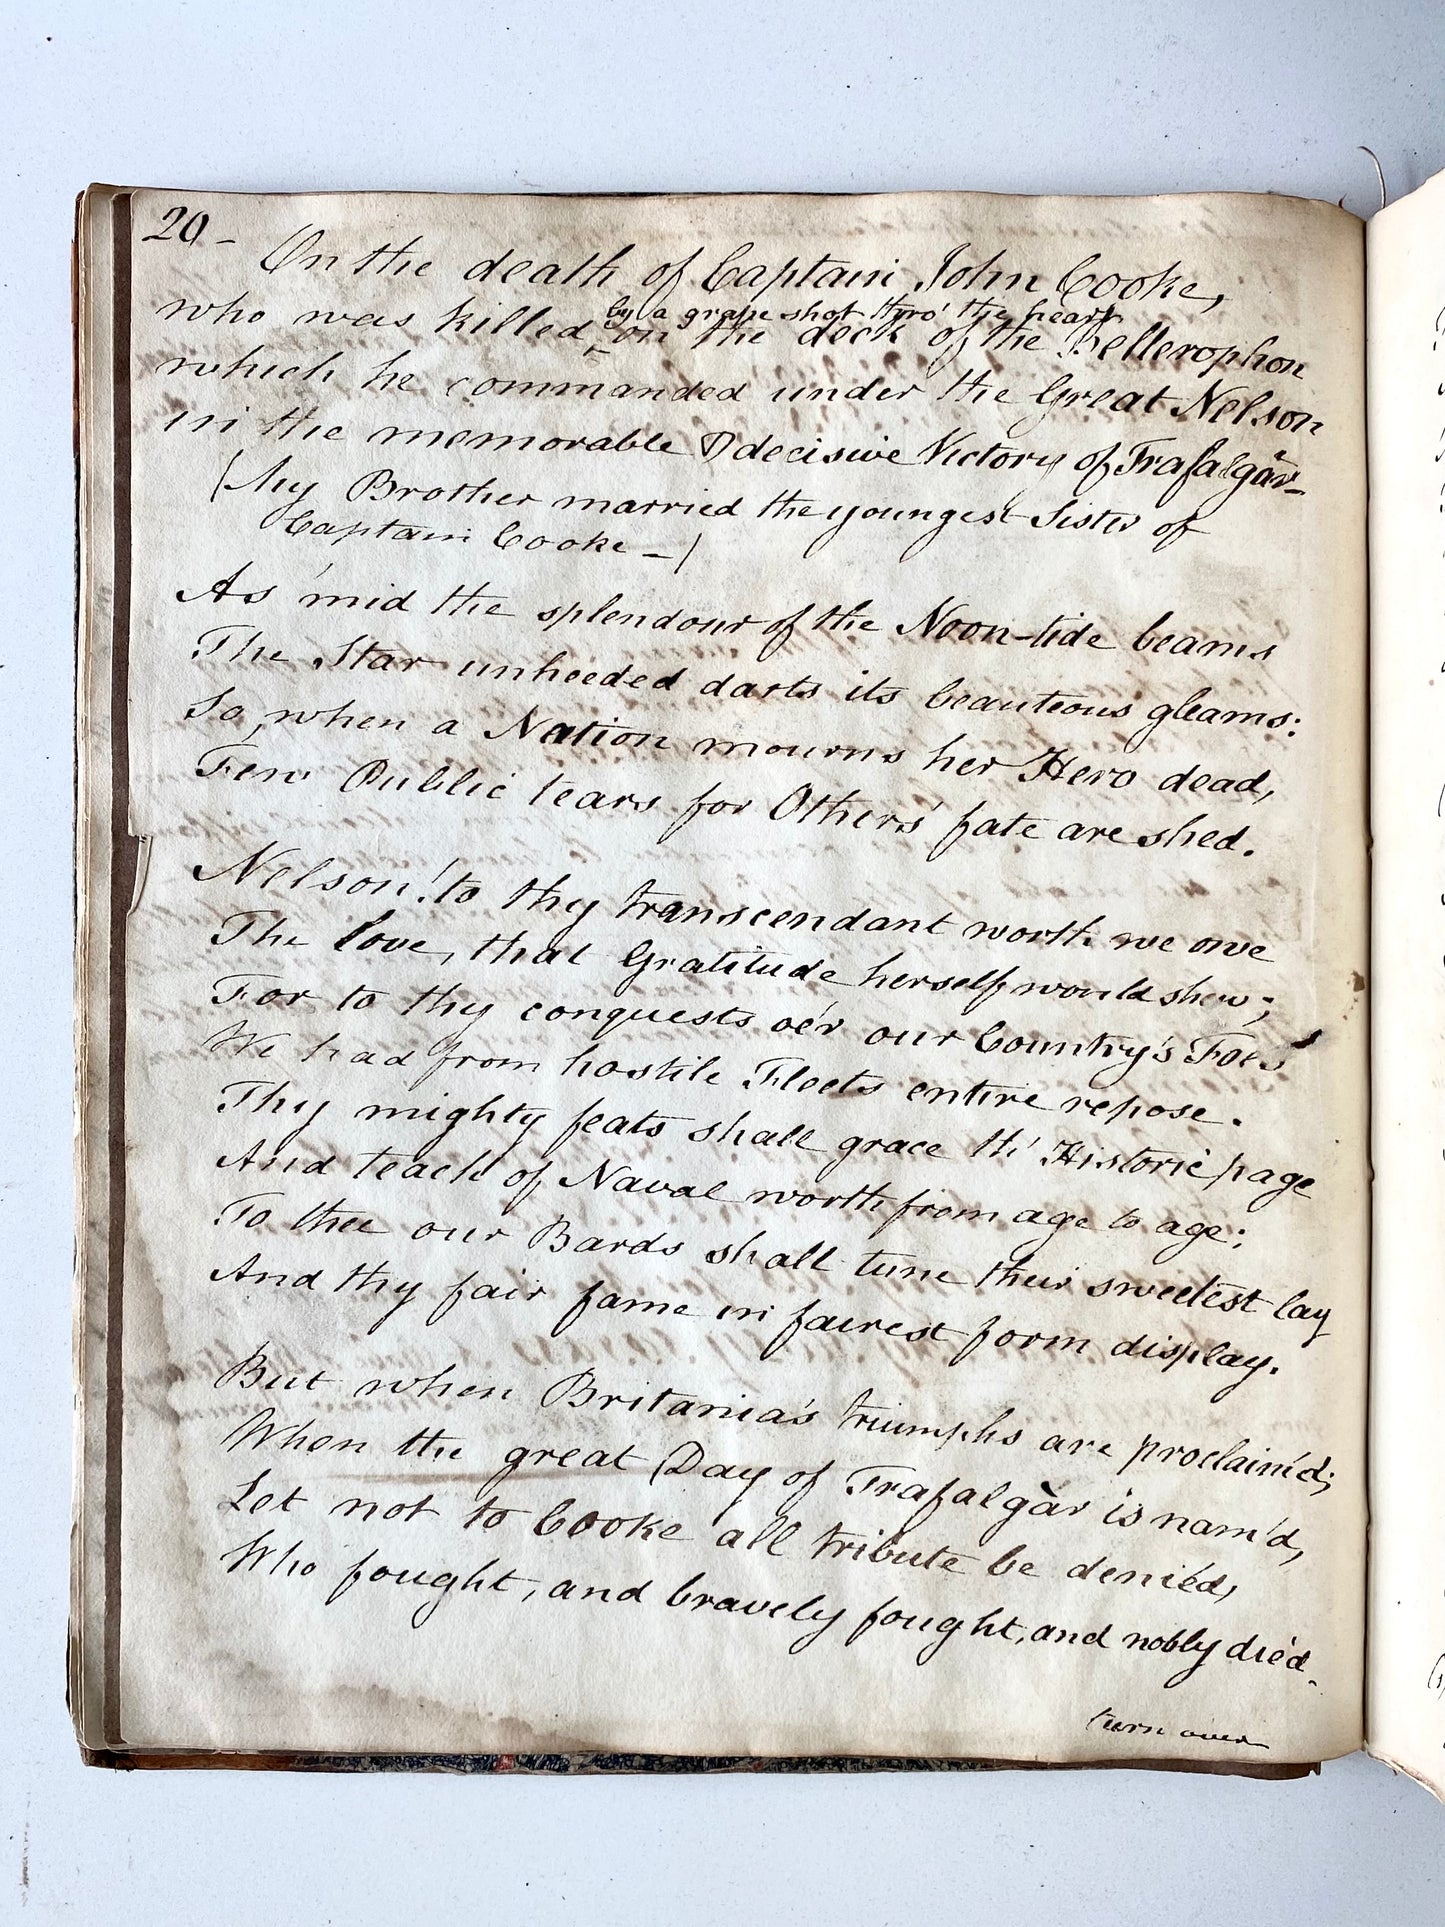 20 -
On the death of Captain John Cooke,
by a grape shot thro' the heart
who was killed ^ on the deck of the Bellerophon
which he commanded under the Great Nelson
in the memorable & decisive Victory of Trafalgàr-
(My Brother married the youngest Sister of
Captain Cooke -)
As 'mid the splendour of the Noon-tide beams
The Star unheeded darts its beauteous gleams:
So, when a Nation mourns her Hero dead,
Few Public tears for Others' fate are shed.
Nelson! to thy transcendant worth we owe
The love, that Gratitude herself would shew;
For to thy conquests oe'r our Country's Foes
We had from hostile Fleets entire repose.
Thy mighty feats shall grace th' Historic page
And teach of Naval worth from age to age;
To thee our Bards shall tune their sweetest lay
And thy fair fame in fairest form display.
But when Britania's triumphs are proclaim'd;
When the great Day of Trafalgàr is nam'd,
Let not to Cooke all tribute be deni'ed,
Who fought, and bravely fought, and nobly die'd.
turn over